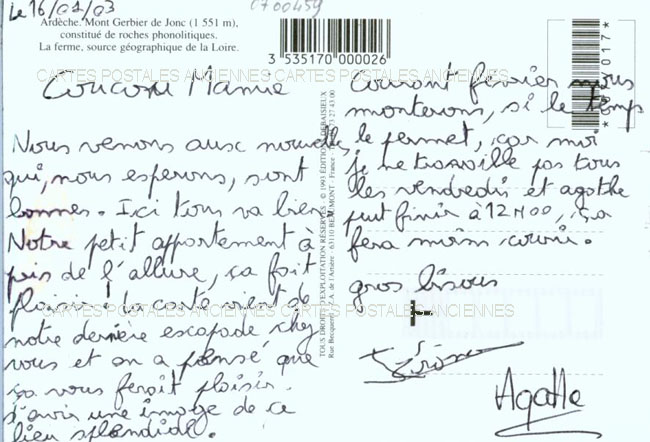 Le 16/01/03
C700459
Ardèche. Mont Gerbier de Jonc (1 551 m),
constitué de roches phonolitiques.
La ferme, source géographique de la Loire.
3 535170 000026
CARTES POSTALES ANCIENNES CARTES POSTALES ANCIENNES
Coucou Mamie
Nous venons aux nouvelles
qui, nous esperons, sont
bonnes. Ici tous va bien
Notre petit appartement à
pris de l'allure, ça fait
plaisir. La carte vient de
notre dernière escapade chez
vous et on a pensé que
ça vous feroit plaisir
d'avoir une image de ce
lieu splendide.
TOUS DROITS D'EXPLOITATION RÉSERVÉS - © 1993 ÉDITIONS DEBAISIEUX
Rue Becquerel - Z.A. de l'Artière - 63110 BEAUMONT - France
courant février nous
monterons, si le temps
le permet, car moi
je ne travaille pas tous
les vendredi et agathe
peut finir à 12H00, ça
fera moins couri.
gros bisous
CARTES POSTALES ANCIENNES CARTES POSTALES ANCIENNES
Agathe